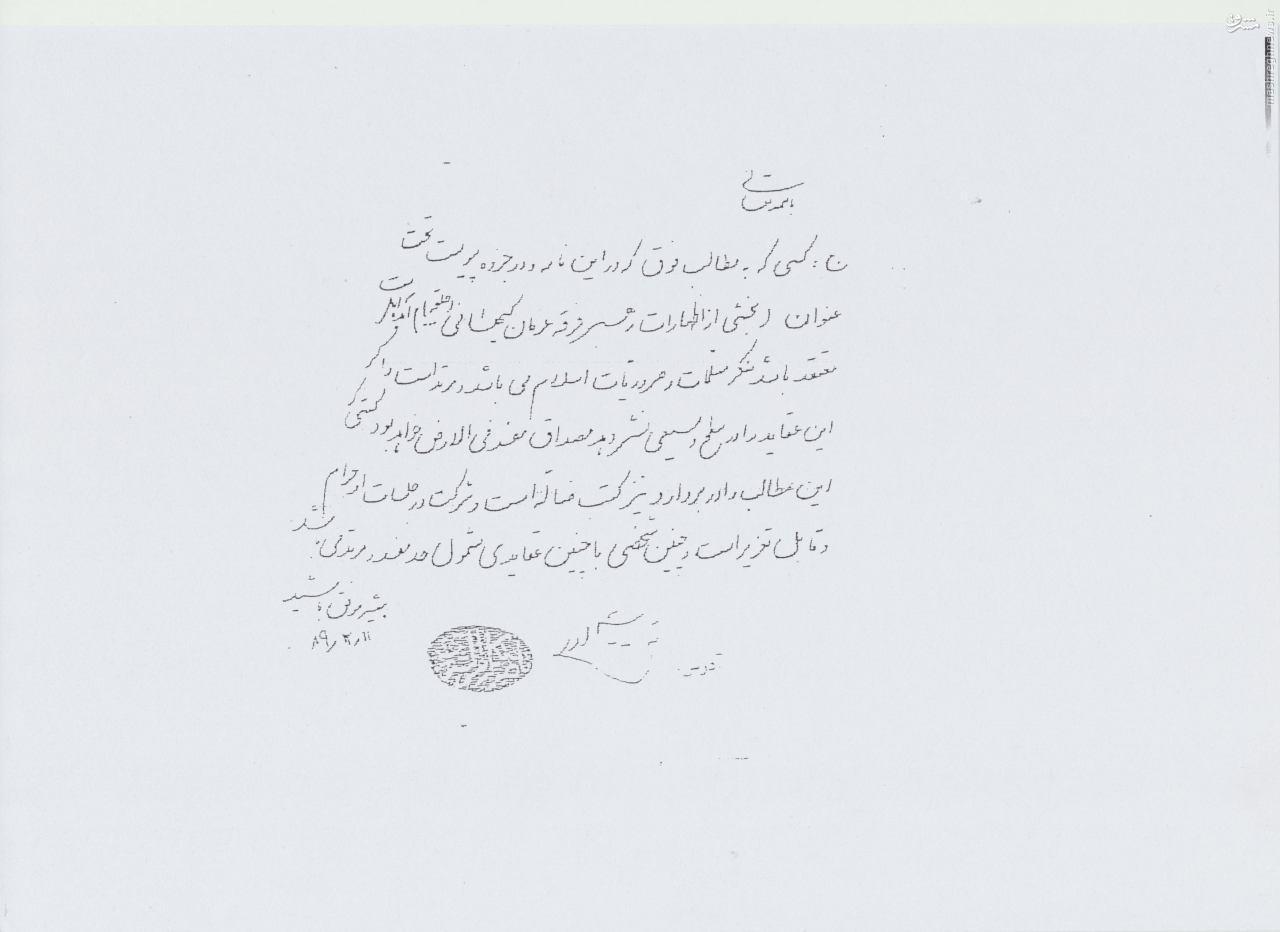 باسمه تعالی
ج: کسی که به مطالب فوق که در این نامه و در جزوه پیوست تحت
عنوان (بخشی از اظهارات رهبر فرقه عرفان کیهانی (حلقه)) آمده است
معتقد باشد منکر مسلمات و ضروریات اسلام می باشد و مرتد است و اگر
این عقاید را در سطح وسیعی نشر دهد مصداق مفسد فی الارض خواهد بود کتبی که
این مطالب را در بردارد نیز کتب ضاله است و شرکت در جلسات او حرام
و قابل تعزیر است و چنین شخصی با چنین عقایدی مشمول حد مفسد و مرتد می باشد
همیشه موفق باشید
۸۹٫۲٫۱۱
مشرق
mashreghnews.ir